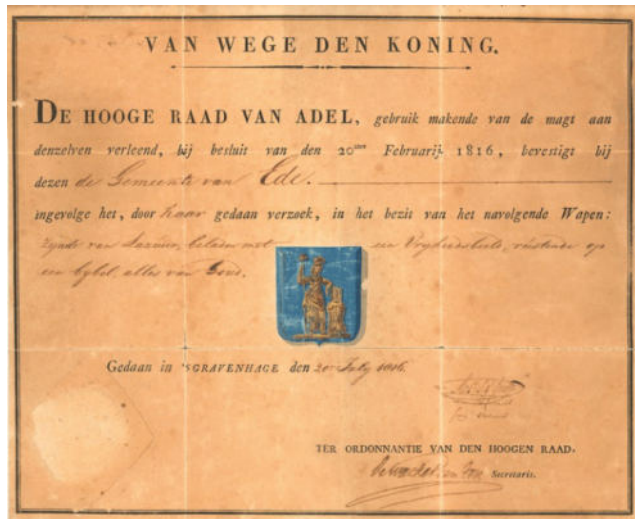 VAN WEGE DEN KONING.
DE HOOGE RAAD VAN ADEL, gebruik makende van de magt aan
denzelven verleend, bij besluit van den 20sten Februarij 1816, bevestigt bij
dezen de Gemeente van Ede.
ingevolge het, door haar gedaan verzoek, in het bezit van het navolgende Wapen:
zijnde van Lazuur, beladen met een Vryheidsbeeld, rustende op
een bybel, alles van Goud.
Gedaan in 'SGRAVENHAGE den 20 July 1816.
TER ORDONNANTIE VAN DEN HOOGEN RAAD.
Secretaris.